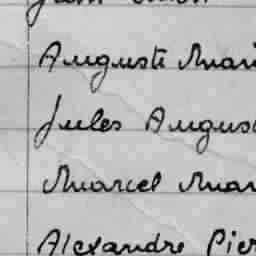 Auguste Mari
Jules August
Marcel Mar
Alexandre Pier